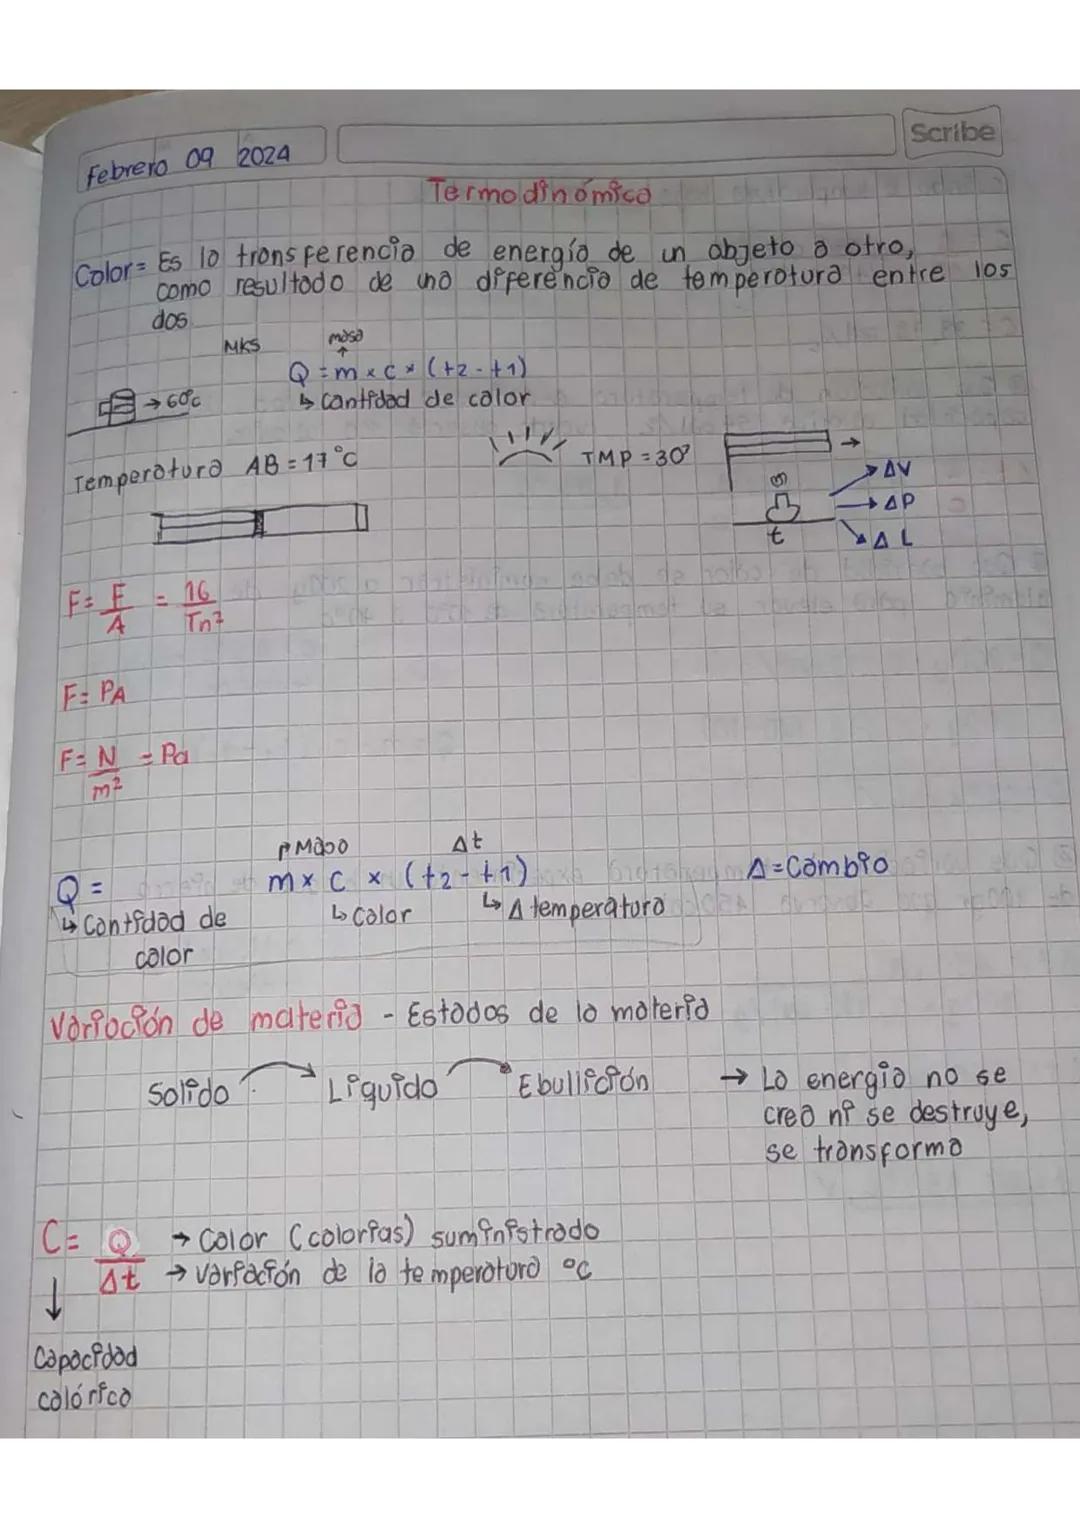 Scribe
Febrero 09 2024
Termodinámica
Calor = Es la transferencia de energía de un objeto a otro,
como resultado de una diferencia de temperatura entre los
dos.
MKS
masa
Q = m x c x (t2 - t1)
→ 60°c
↳ cantidad de calor
Temperatura AB = 17°C
TMP = 30°
→ ΔV
→ ΔP
t
↘ Δ L
F = F/A = 16/In²
F = PA
F = N/m² = Pa
Masa
Δt
Q = m x c x (t2 - t1)
Δ = Cambio
↳ Cantidad de
calor
↳ calor
↳ Δ temperatura
Variación de materia - Estados de la materia
Solido
Liquido
Ebullición
→ La energia no se
crea ni se destruye,
se transforma
C = Q/Δt
→ Calor (calorias) suministrado
→ variación de la temperatura °C
↓
Capacidad
calórica